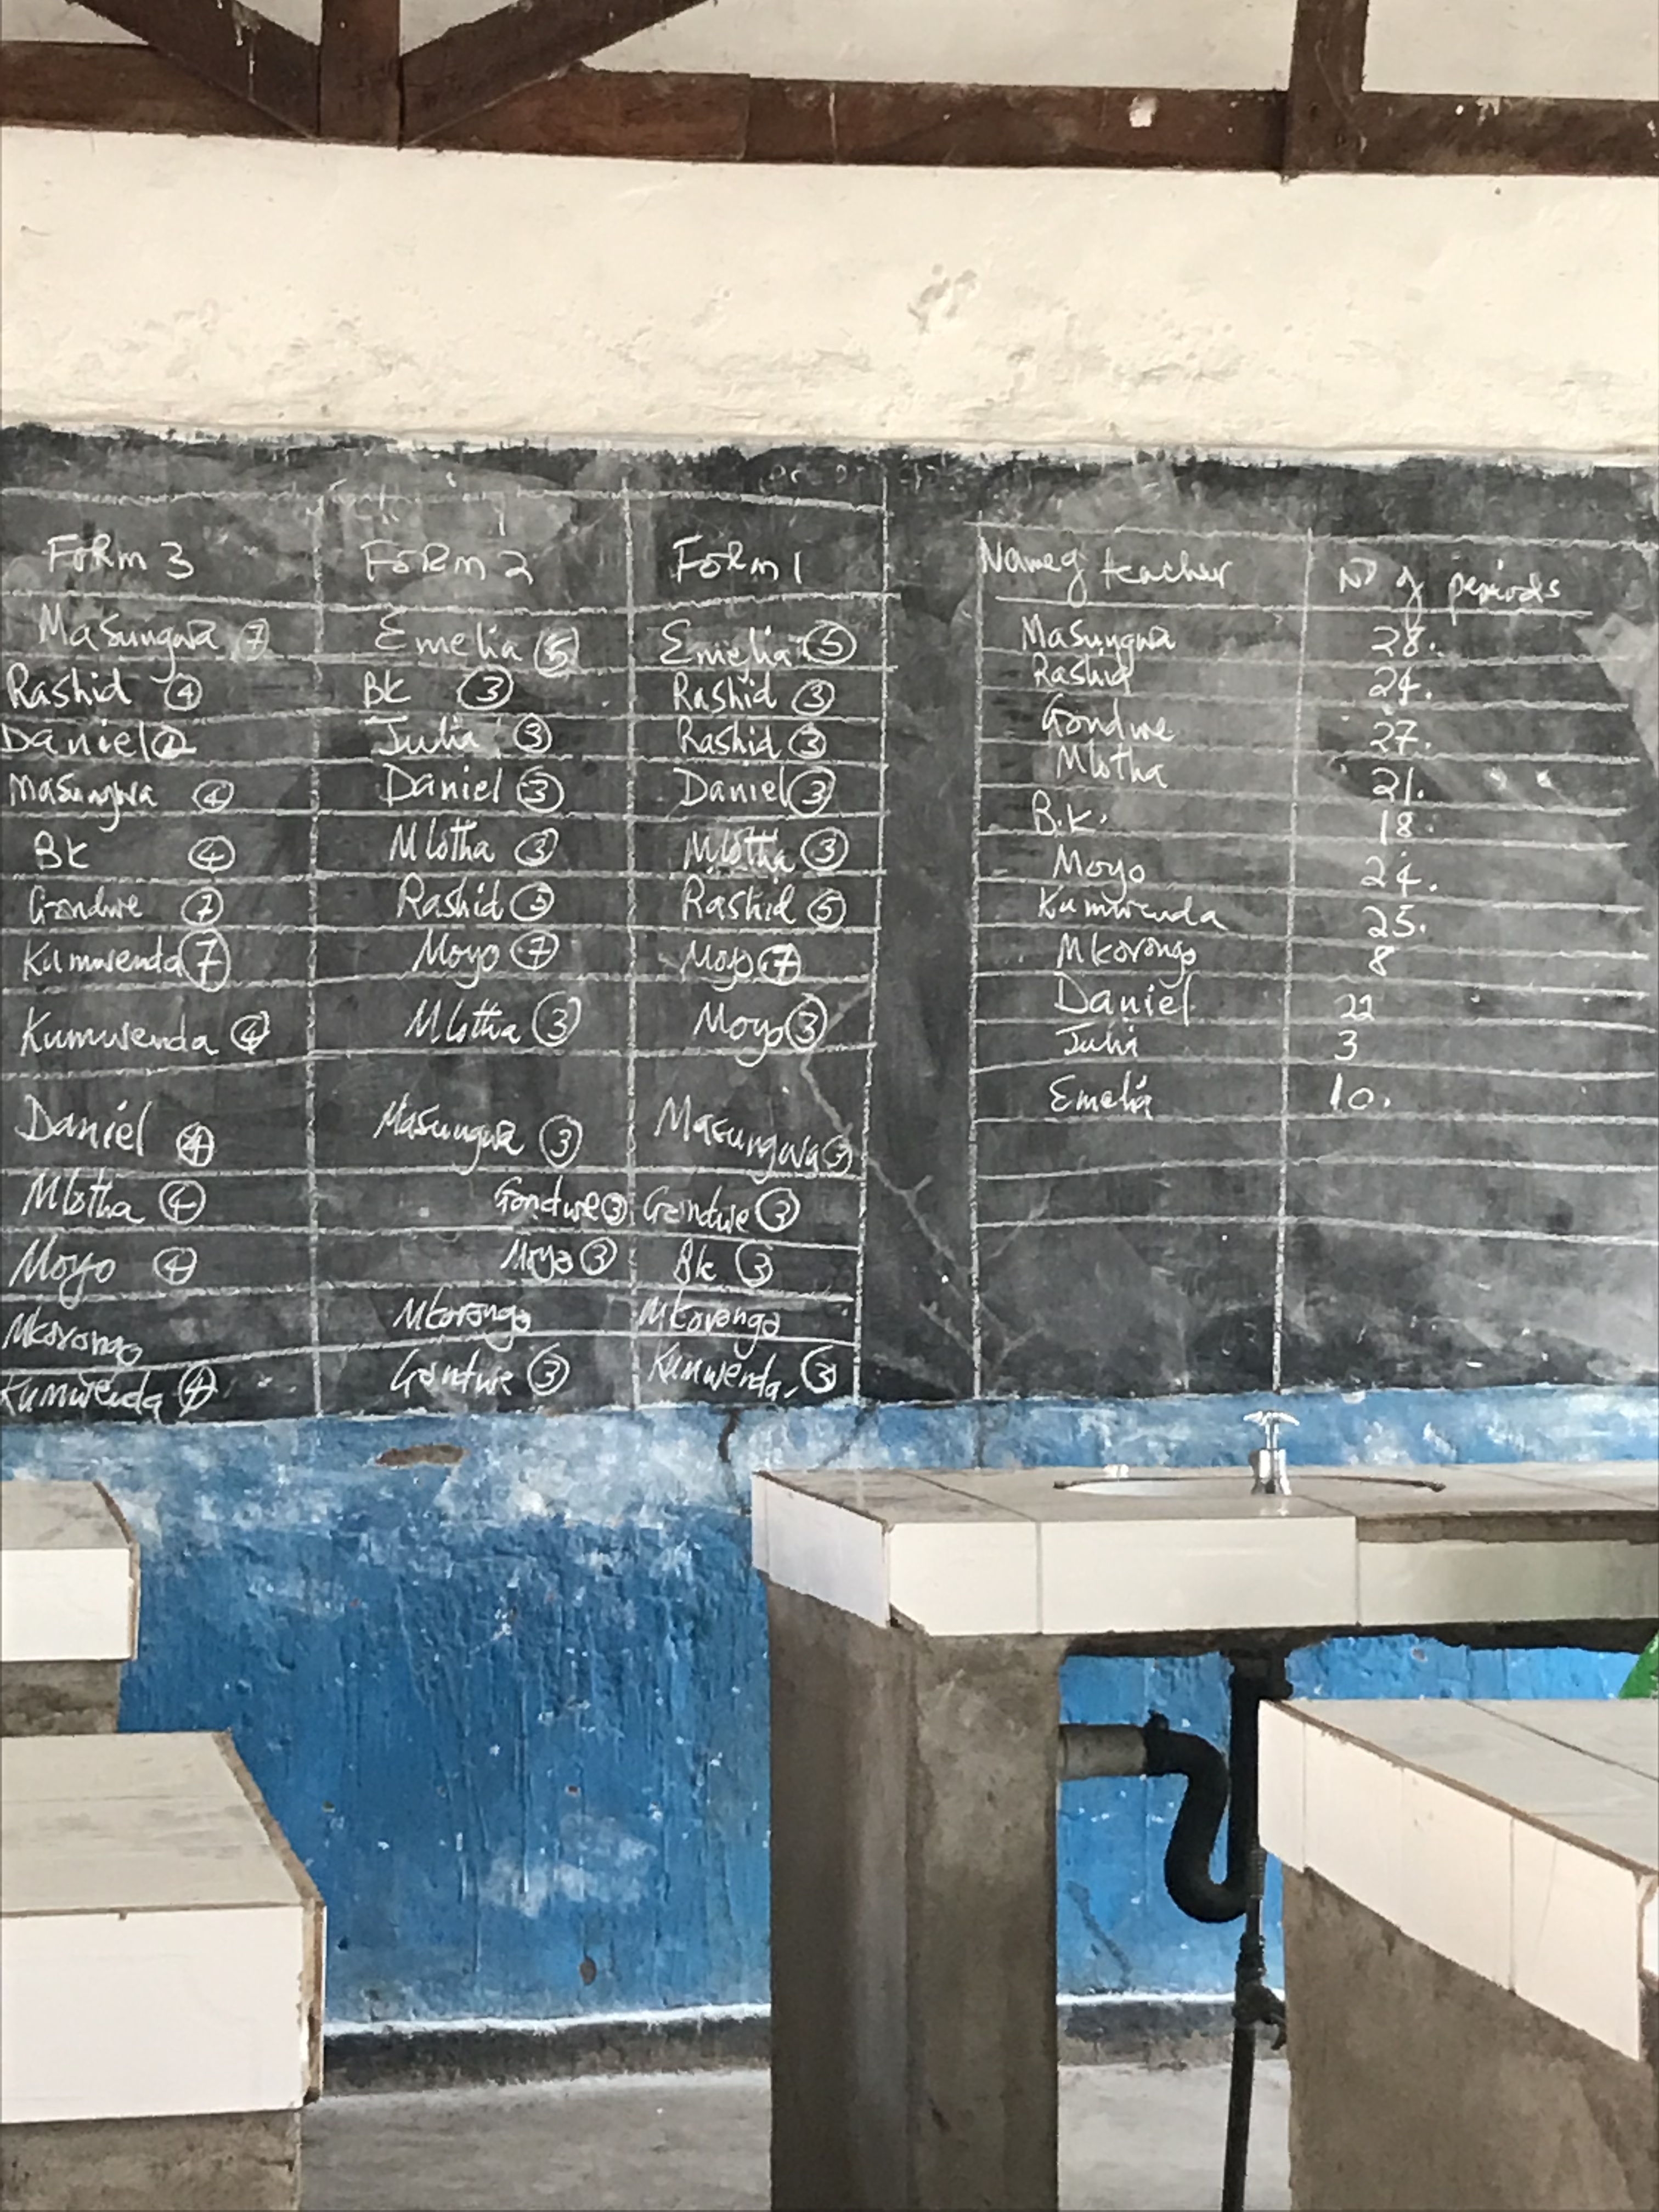 FORM 3 FORM 2 FORM 1
Masungwa 7 Emelia 5 Emelia 5
Rashid 4 BK 3 Rashid 3
Daniel 2 Julia 3 Rashid 3
Masungwa 4 Daniel 3 Daniel 3
BK 4 Mlotha 3 Mlotha 3
Gondwe 7 Rashid 5 Rashid 5
Kumwenda 7 Moyo 7 Moyo 7
Kumwenda 4 Mlotha 3 Moyo 3
Daniel 4 Masungwa 3 Masungwa 3
Mlotha 4 Gondwe 3 Gondwe 3
Moyo 4 Moyo 3 Bk 3
Mkorongo Mkorongo Mkorongo
Kumwenda 4 Gondwe 3 Kumwenda. 3
Name of teacher No of periods
Masungwa 28.
Rashid 24.
Gondwe 27.
Mlotha 21.
B.K. 18.
Moyo 24.
Kumwenda 25.
Mkorongo 8
Daniel 22
Julia 3
Emelia 10.